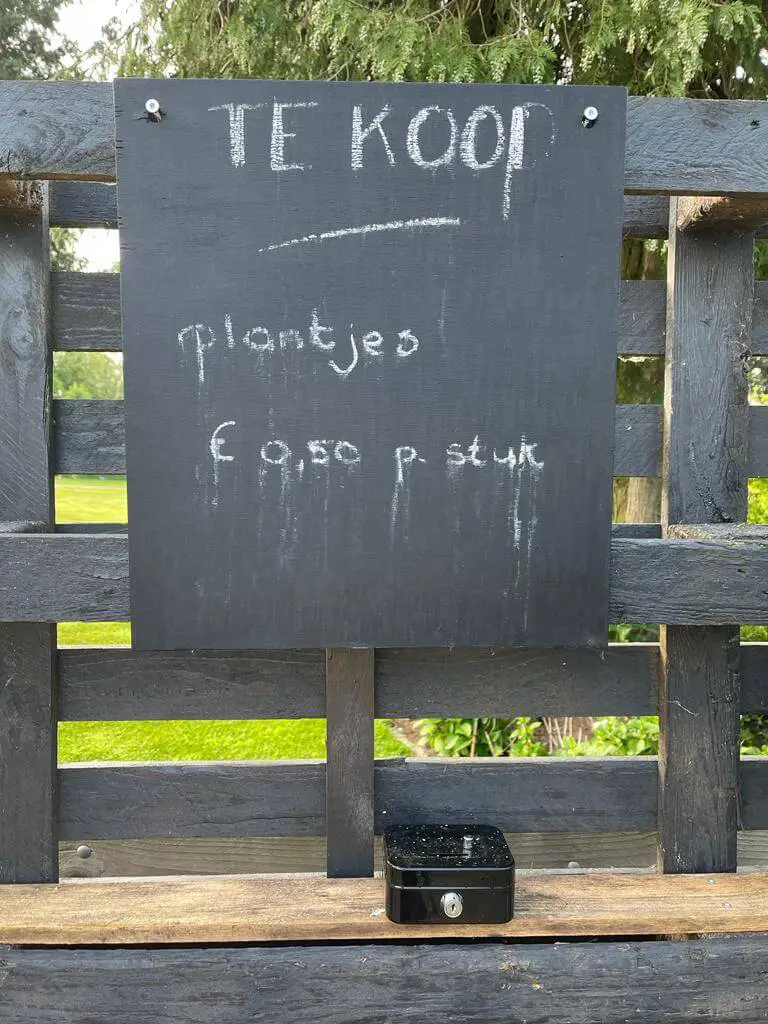 TE KOOP
plantjes
€ 0,50 p. stuk